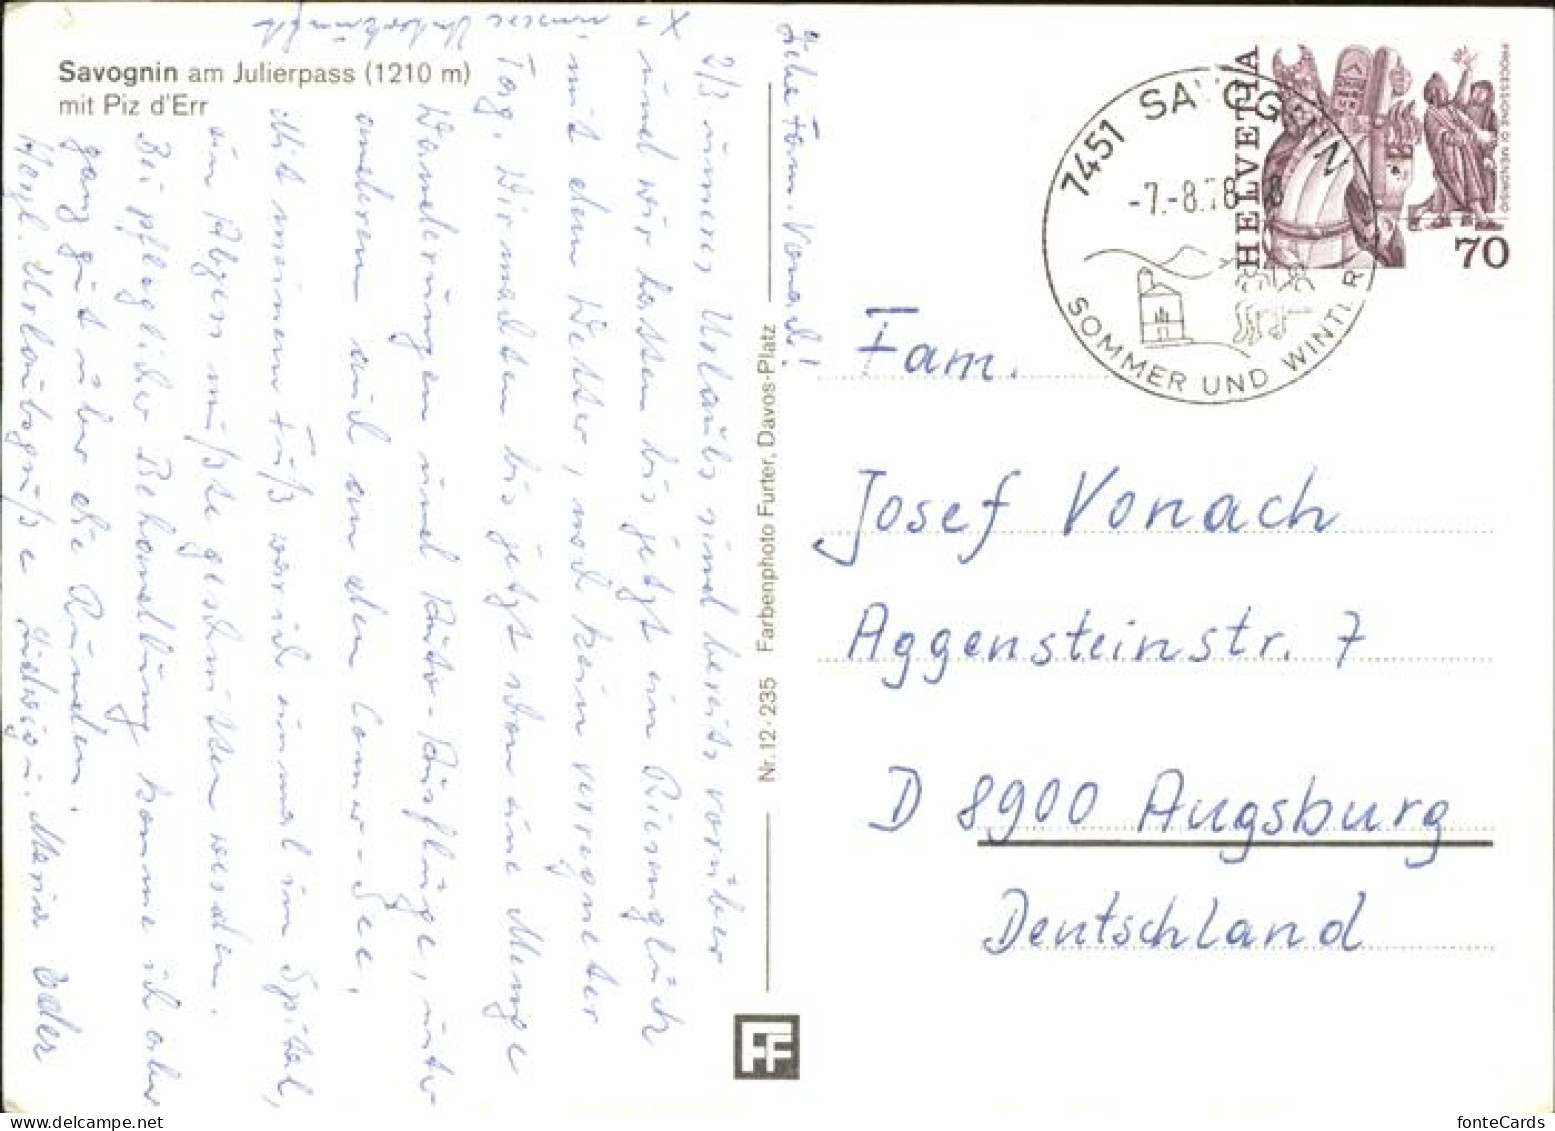 Savognin am Julierpass (1210 m)
mit Piz d'Err
x unsere Unterkunft
Liebe Fam. Vonach!
2/3 unseres Urlaubs sind bereits vorüber
und wir hatten bis jetzt ein Riesenglück
mit dem Wetter, noch kein verregneter
Tag. Wir machten bis jetzt schon eine Menge
Wanderungen und Auto-Ausflüge, unter
anderem auch an den Comer-See.
Mit meinem Fuß war ich einmal im Spital,
ein Abzess mußte geschnitten werden.
Bei pfleglicher Behandlung komme ich aber
ganz gut über die Runden.
Herzl. Urlaubsgrüße Ludwig u. Maria Eder
Nr. 12-235 Farbenphoto Furter, Davos-Platz
FF
7451 SAVOGNIN
-7.-8.78-8
SOMMER UND WINTER
HELVETIA
PROCESSIONE DI MENDRISIO
70
Fam.
Josef Vonach
Aggensteinstr. 7
D 8900 Augsburg
Deutschland
fonteCards